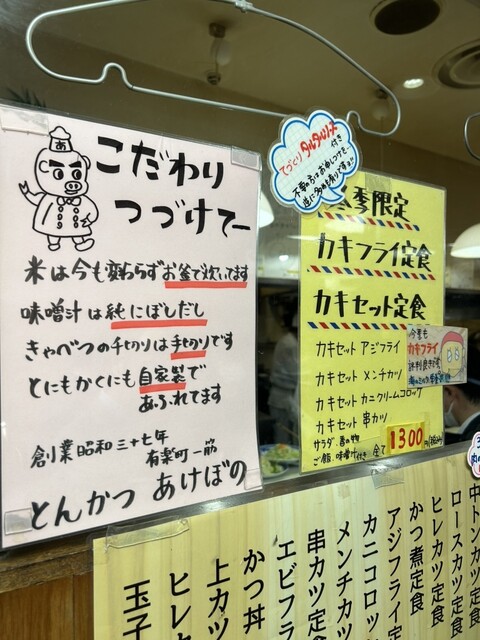 あ
こだわり
つづけてー
米は今も変わらずお釜で炊いてます
味噌汁は純にぼしだし
きゃべつの千切りは手切りです
とにもかくにも自家製で
あふれてます
創業昭和三十七年
有楽町一筋
とんかつ あけぼの
てづくりタルタルソース付き
不要の方はお申しつけを〜
逆に多めも有りです!!
季限定
カキフライ定食
カキセット定食
カキセット アジフライ
カキセット メンチカツ
カキセット カニクリームコロッケ
カキセット 串カツ
サラダ、香の物
ご飯、味噌汁付き 全て1300円(税込)
今季も
カキフライ
評判良きです
中トンカツ定食
ロースカツ定食
ヒレカツ定食
かつ煮定食
アジフライ定
カニコロッ
メンチカツ
串カツ定食
エビフラ
かつ丼
上カツ
ヒレカ
玉子